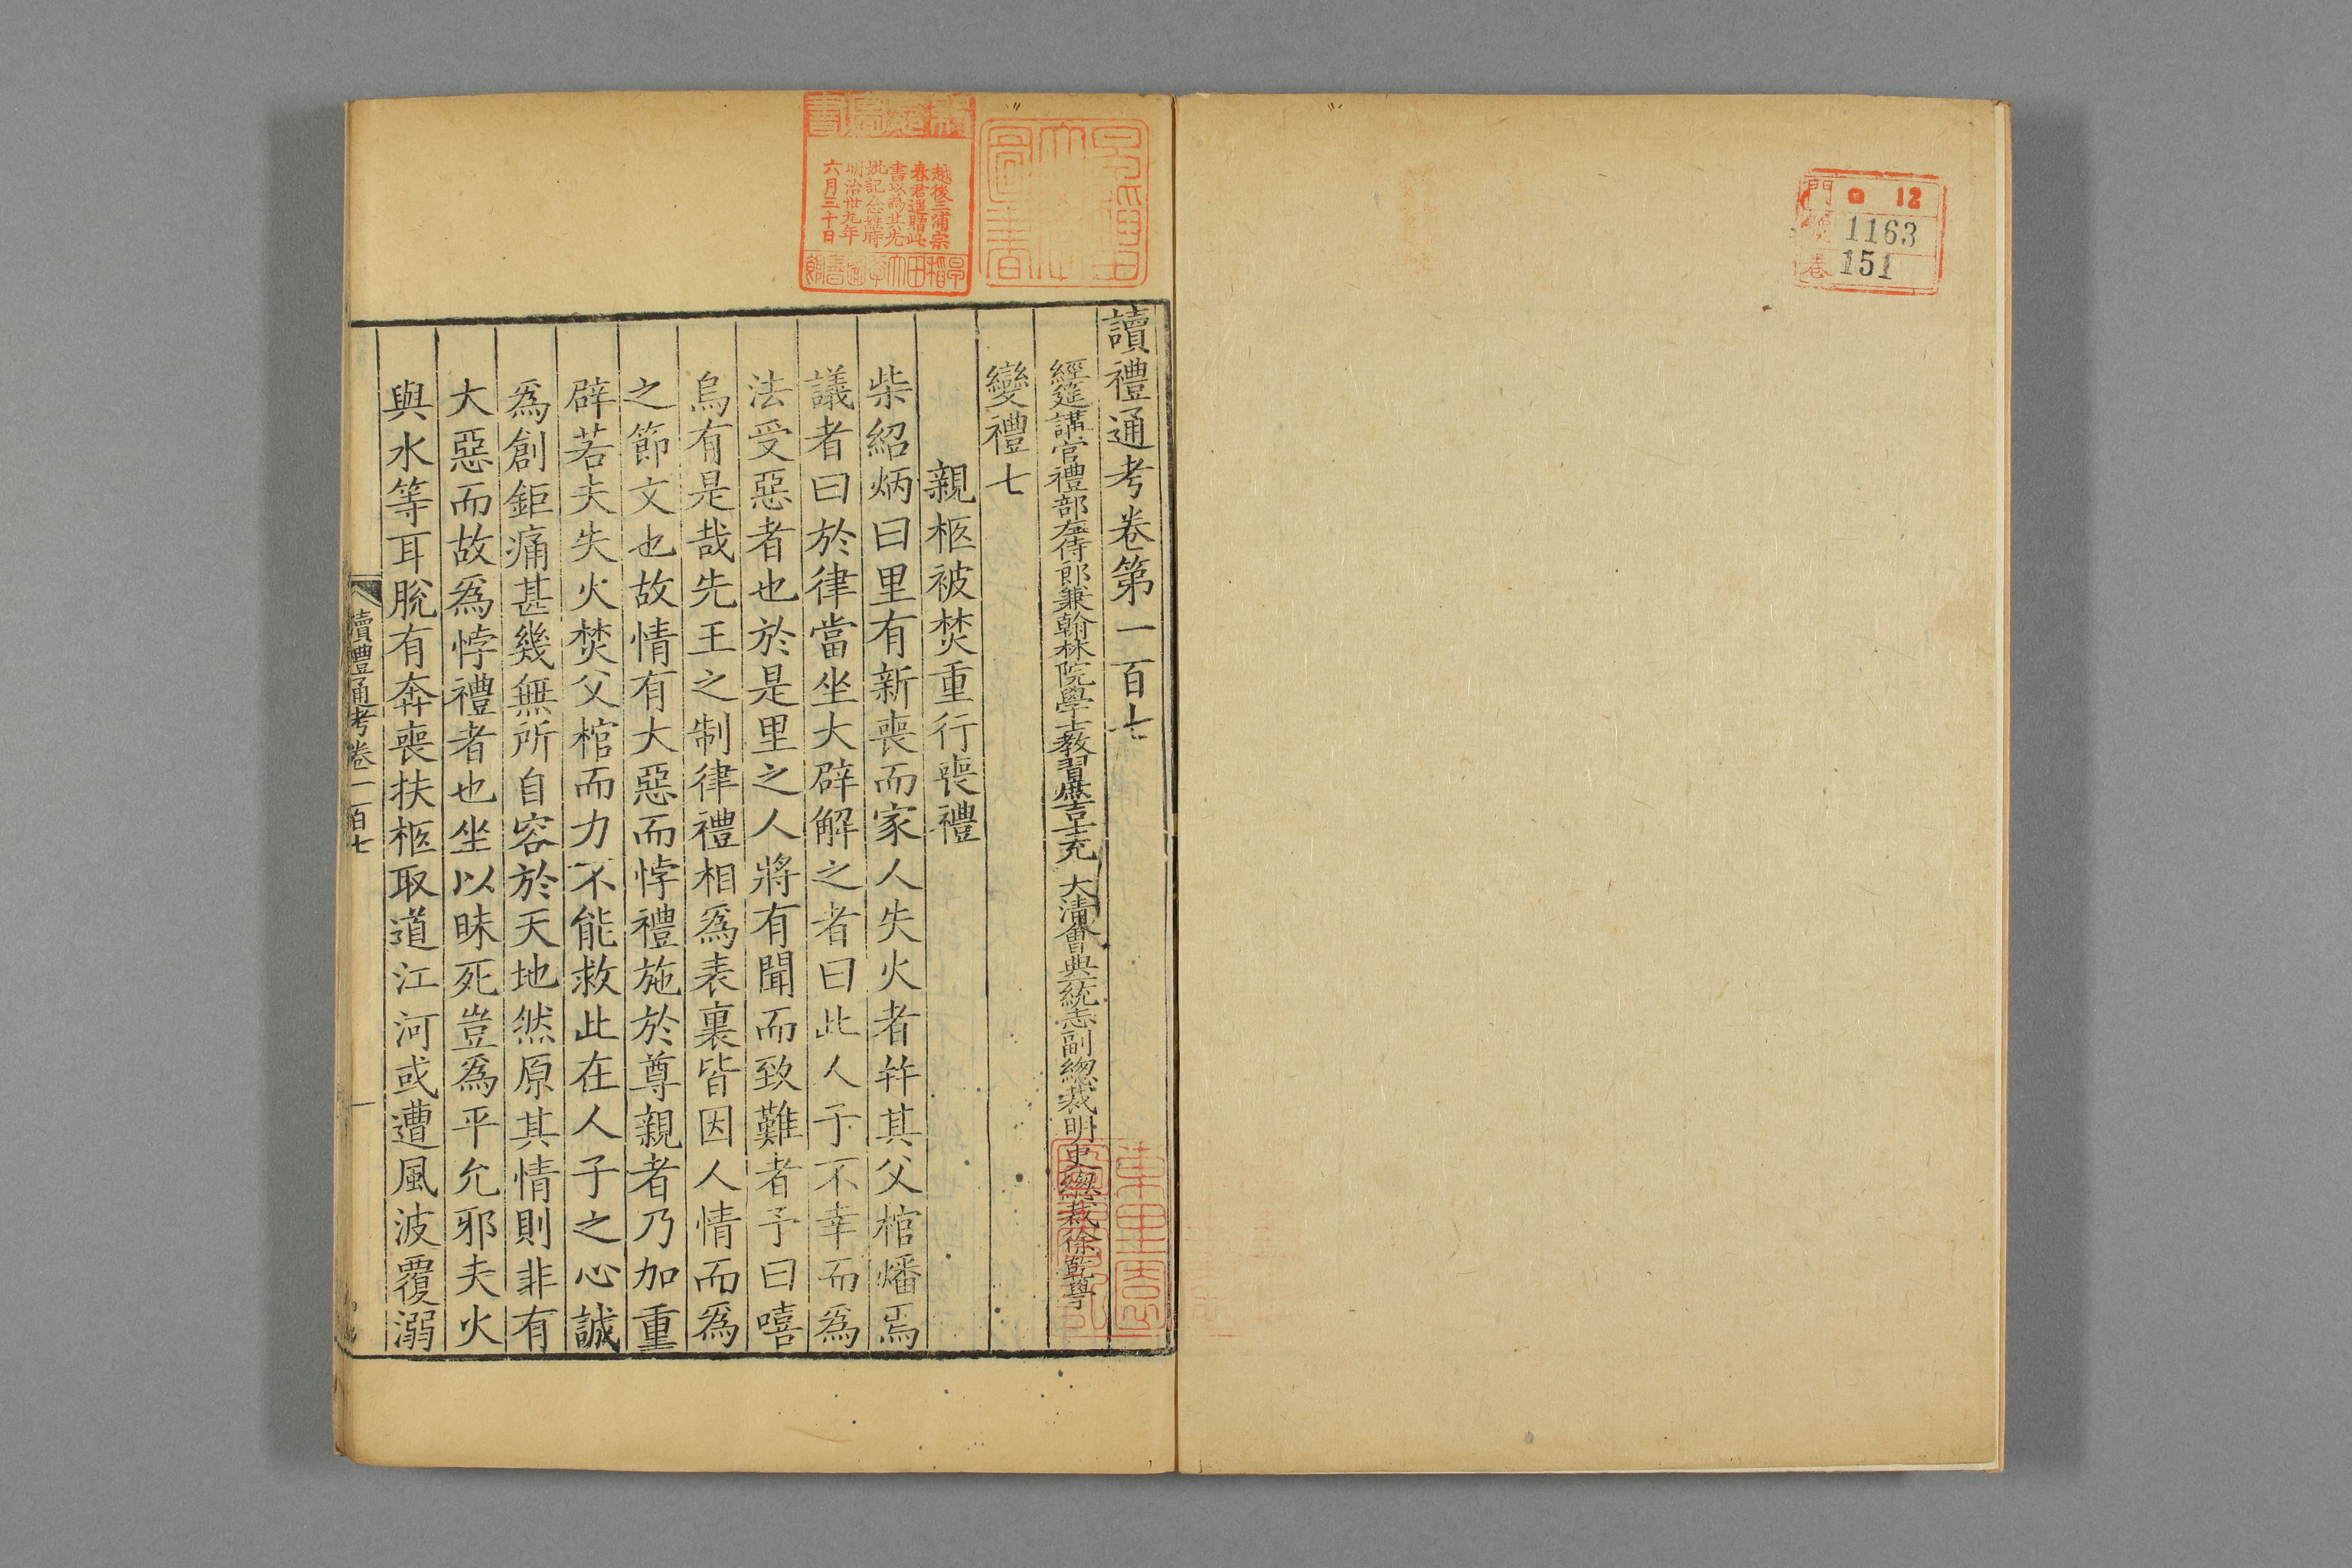 門 ロ 12
號 1163
卷 151
讀禮通考卷第一百七
經筵講官禮部左侍郎兼翰林院學士教習庶吉士充 大清會典一統志副總裁明史總裁徐乾學
變禮七
親柩被焚重行喪禮
柴紹炳曰里有新喪而家人失火者幷其父棺燔焉
議者曰於律當坐大辟解之者曰此人子不幸而爲
法受惡者也於是里之人將有聞而致難者予曰嘻
烏有是哉先王之制律禮相爲表裏皆因人情而爲
之節文也故情有大惡而悖禮施於尊親者乃加重
辟若夫失火焚父棺而力不能救此在人子之心誠
爲創鉅痛甚幾無所自容於天地然原其情則非有
大惡而故爲悖禮者也坐以昧死豈爲平允邪夫火
與水等耳脫有奔喪扶柩取道江河或遭風波覆溺
讀禮通考卷一百七
一
越後三浦宗
春君遥贈此
書以爲其先
妣記念維時
明治卅九年
六月三十日
早稻田大學圖書館